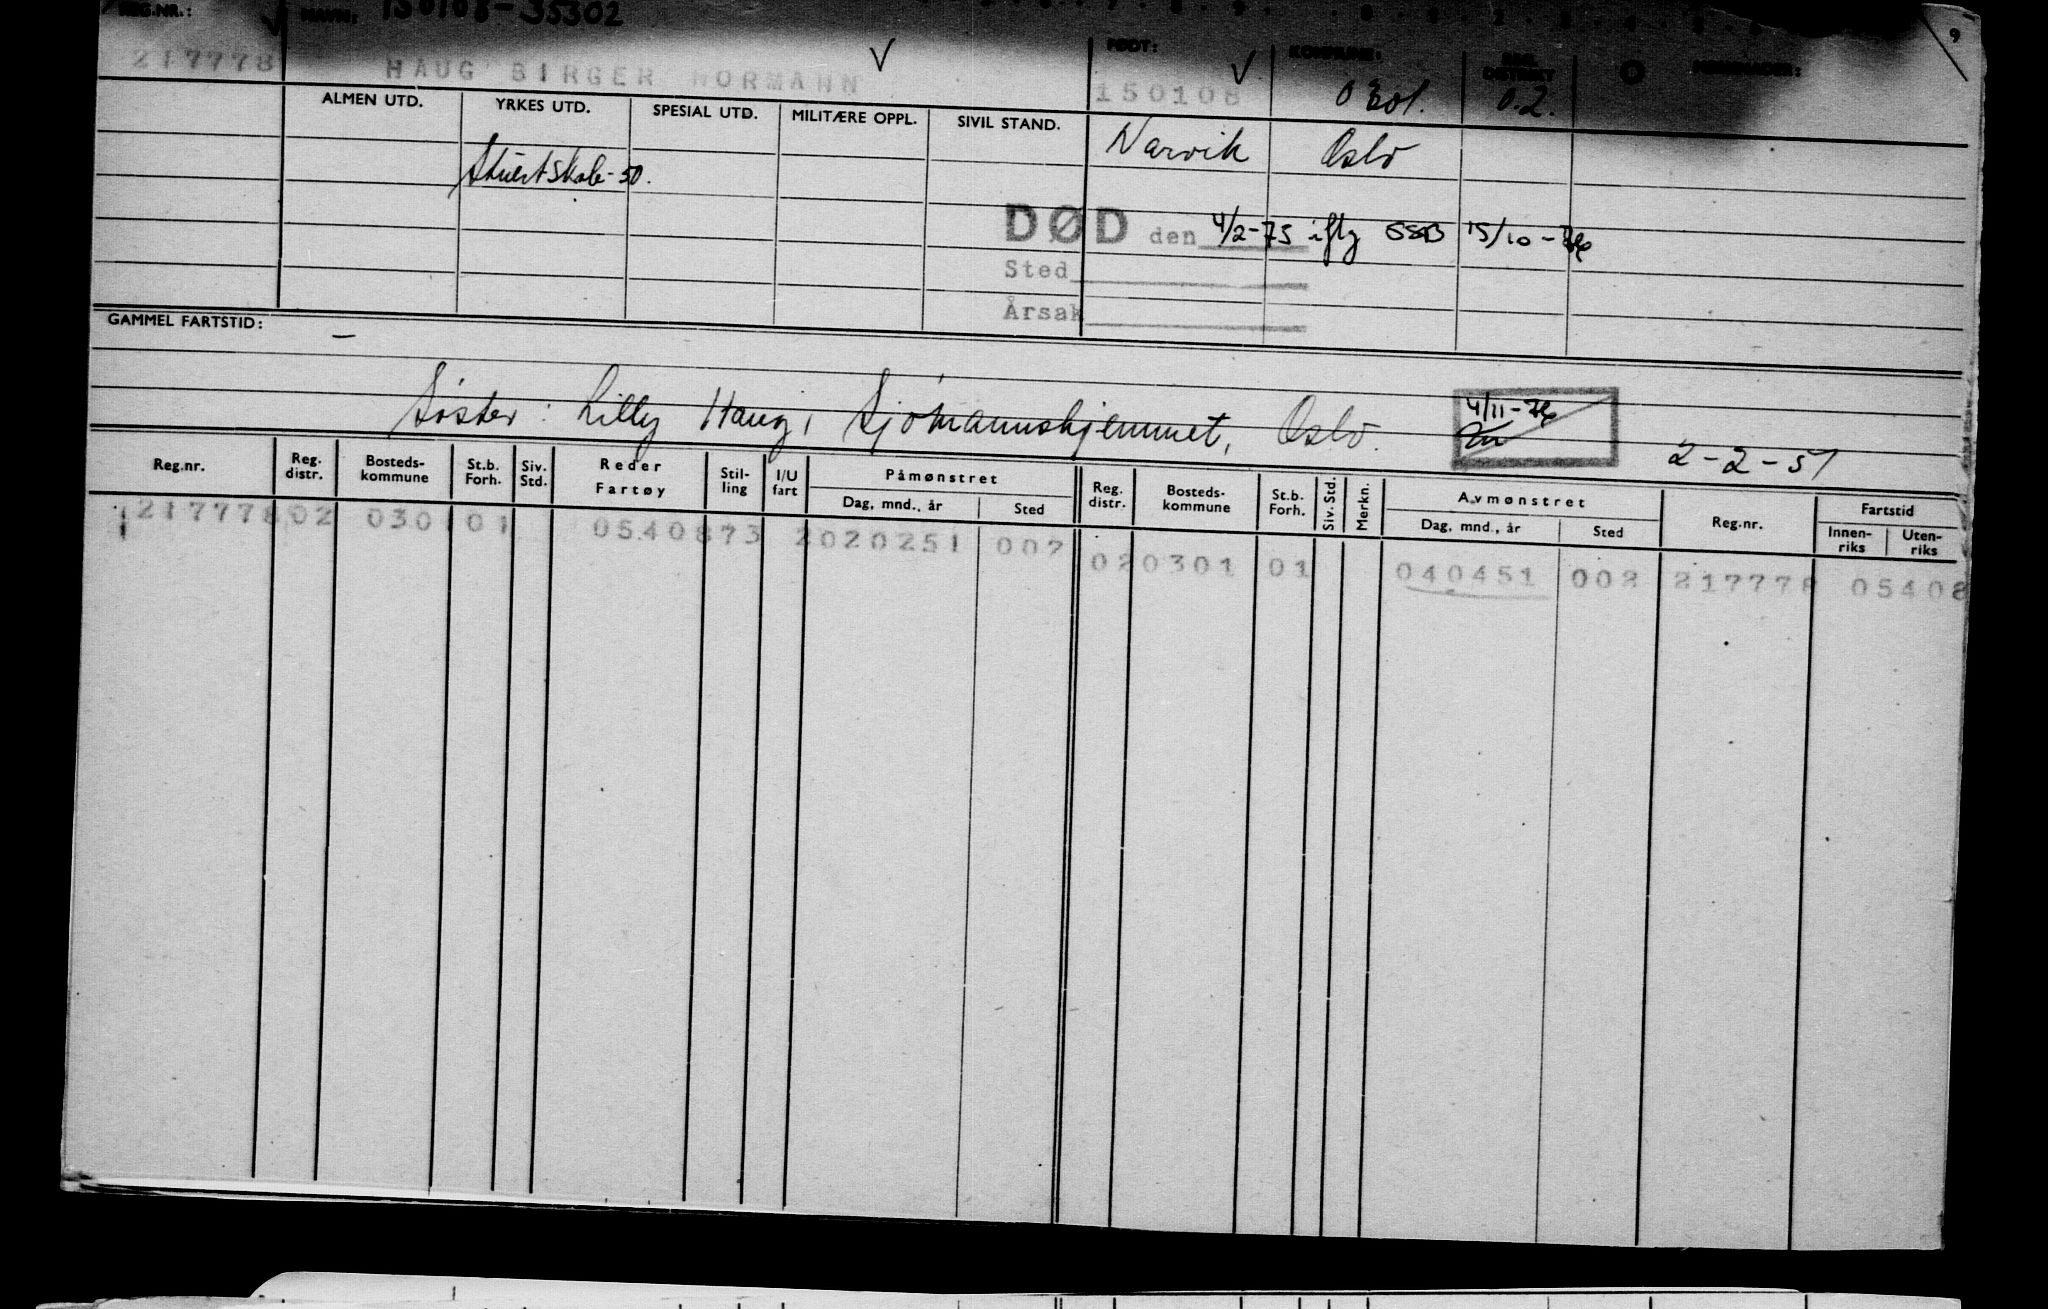 REG.NR.: NAVN: 150108-35302 FØDT: KOMMUNE: REG. DISTRIKT MERKNADER: 9
217778 HAUG BIRGER NORMANN 150108 0301. 02.
ALMEN UTD. YRKES UTD. SPESIAL UTD. MILITÆRE OPPL. SIVIL STAND. Narvik Oslo
Stuertskole-50.
DØD den 4/2-75 iflg SSB 15/10-76
Sted
Årsak
GAMMEL FARTSTID: —
Søster: Lilly Haug, Sjømannshjemmet, Oslo. 4/11-76
2-2-51
Reg.nr. Reg. distr. Bosteds-kommune St.b. Forh. Siv. Std. Reder Fartøy Stil-ling I/U fart Påmønstret Dag, mnd., år Sted Reg. distr. Bosteds-kommune St.b. Forh. Siv. Std. Merkn. Avmønstret Dag, mnd., år Sted Reg.nr. Fartstid Innen-riks Uten-riks
217778 02 0301 01 0540873 2020251 002 02 0301 01 040451 002 217778 05408